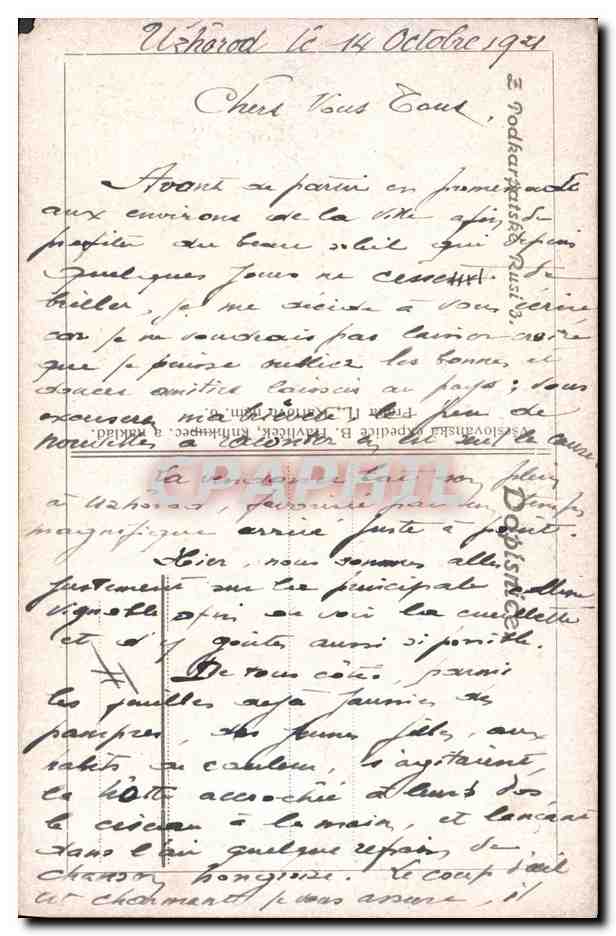 Užhorod le 14 Octobre 1921
Chers Vous Tous,
Avant de partir en promenade
aux environs de la ville afin de
profiter du beau soleil qui depuis
quelques jours ne cesse de
briller, je me décide à vous écrire
car je ne voudrais pas laisser croire
que je puisse oublier les bonnes et
douces amitiés laissées au pays ; vous
excuserez ma brièveté le peu de
nouvelles à raconter en est seul la cause.
La vendange bat son plein
à Uzhorod, favorisée par un temps
magnifique arrivé juste à point.
Hier, nous sommes allés
justement sur la principale colline
vignoble afin de voir la cueillette
et d'y goûter aussi si possible.
De tous côtés, parmi
les feuilles déjà jaunies des
pampres, des jeunes filles, aux
habits de couleur, s'agitaient,
la hotte accrochée à leurs dos,
le ciseau à la main, et lançant
dans l'air quelque refrain de
chanson hongroise. Le coup d'œil
est charmant je vous assure, il
Z Podkarpatské Rusi 3.
Všeslovanská expedice B. Havlíček, knihkupec a náklad.
Praha II., Karlovo nám.
Dopisnice
CPAPHIL